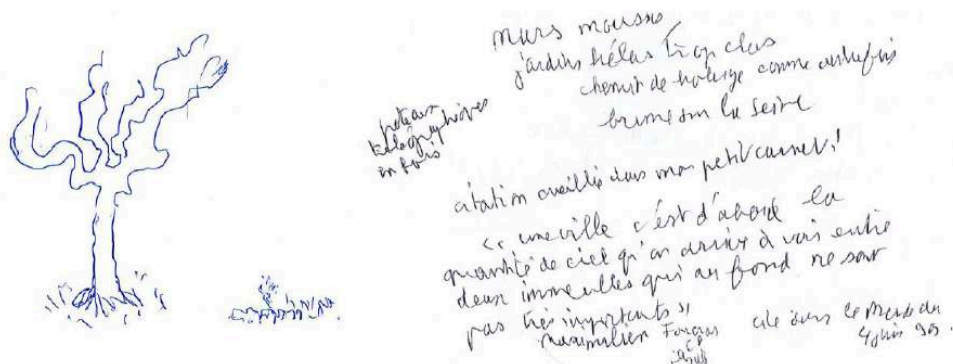 murs moussus
jardins hélas trop clos
chemin de halage comme autrefois
brume sur la Seine
poteaux
télégraphiques
en bois
citation cueillie dans mon petit carnet !
« une ville c'est d'abord la
quantité de ciel qu'on arrive à voir entre
deux immeubles qui au fond ne sont
pas très importants »
Maximilien
cité dans Le Monde du
4 juin